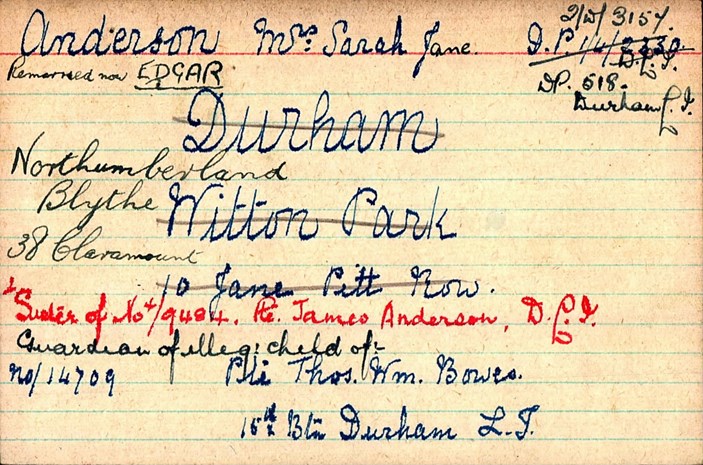 Anderson Mrs. Sarah Jane.
2/W/ 3157.
D.P. 1/4/2330.
D.L.I.
D.P. 518.
Durham L.I.
Remarried now EDGAR
Durham
Northumberland
Blythe
Witton Park
38 Claramount
10 Jane Pitt Row.
Sister of No 4/9484. Pte. James Anderson, D.L.I.
Guardian of illeg: child of:-
No/14709 Pte Thos. Wm. Bowes.
15th Btn Durham L.I.